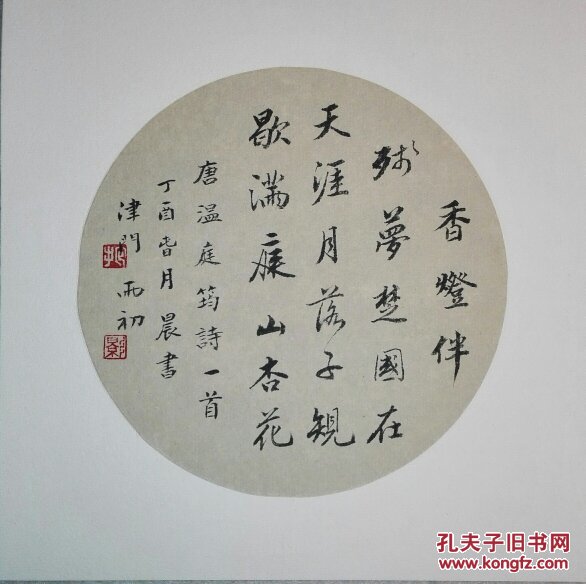 香燈伴
殘夢楚國在
天涯月落子規
歇滿庭山杏花
唐温庭筠詩一首
丁酉春月晨書
津門
雨初
孔夫子旧书网
www.kongfz.com